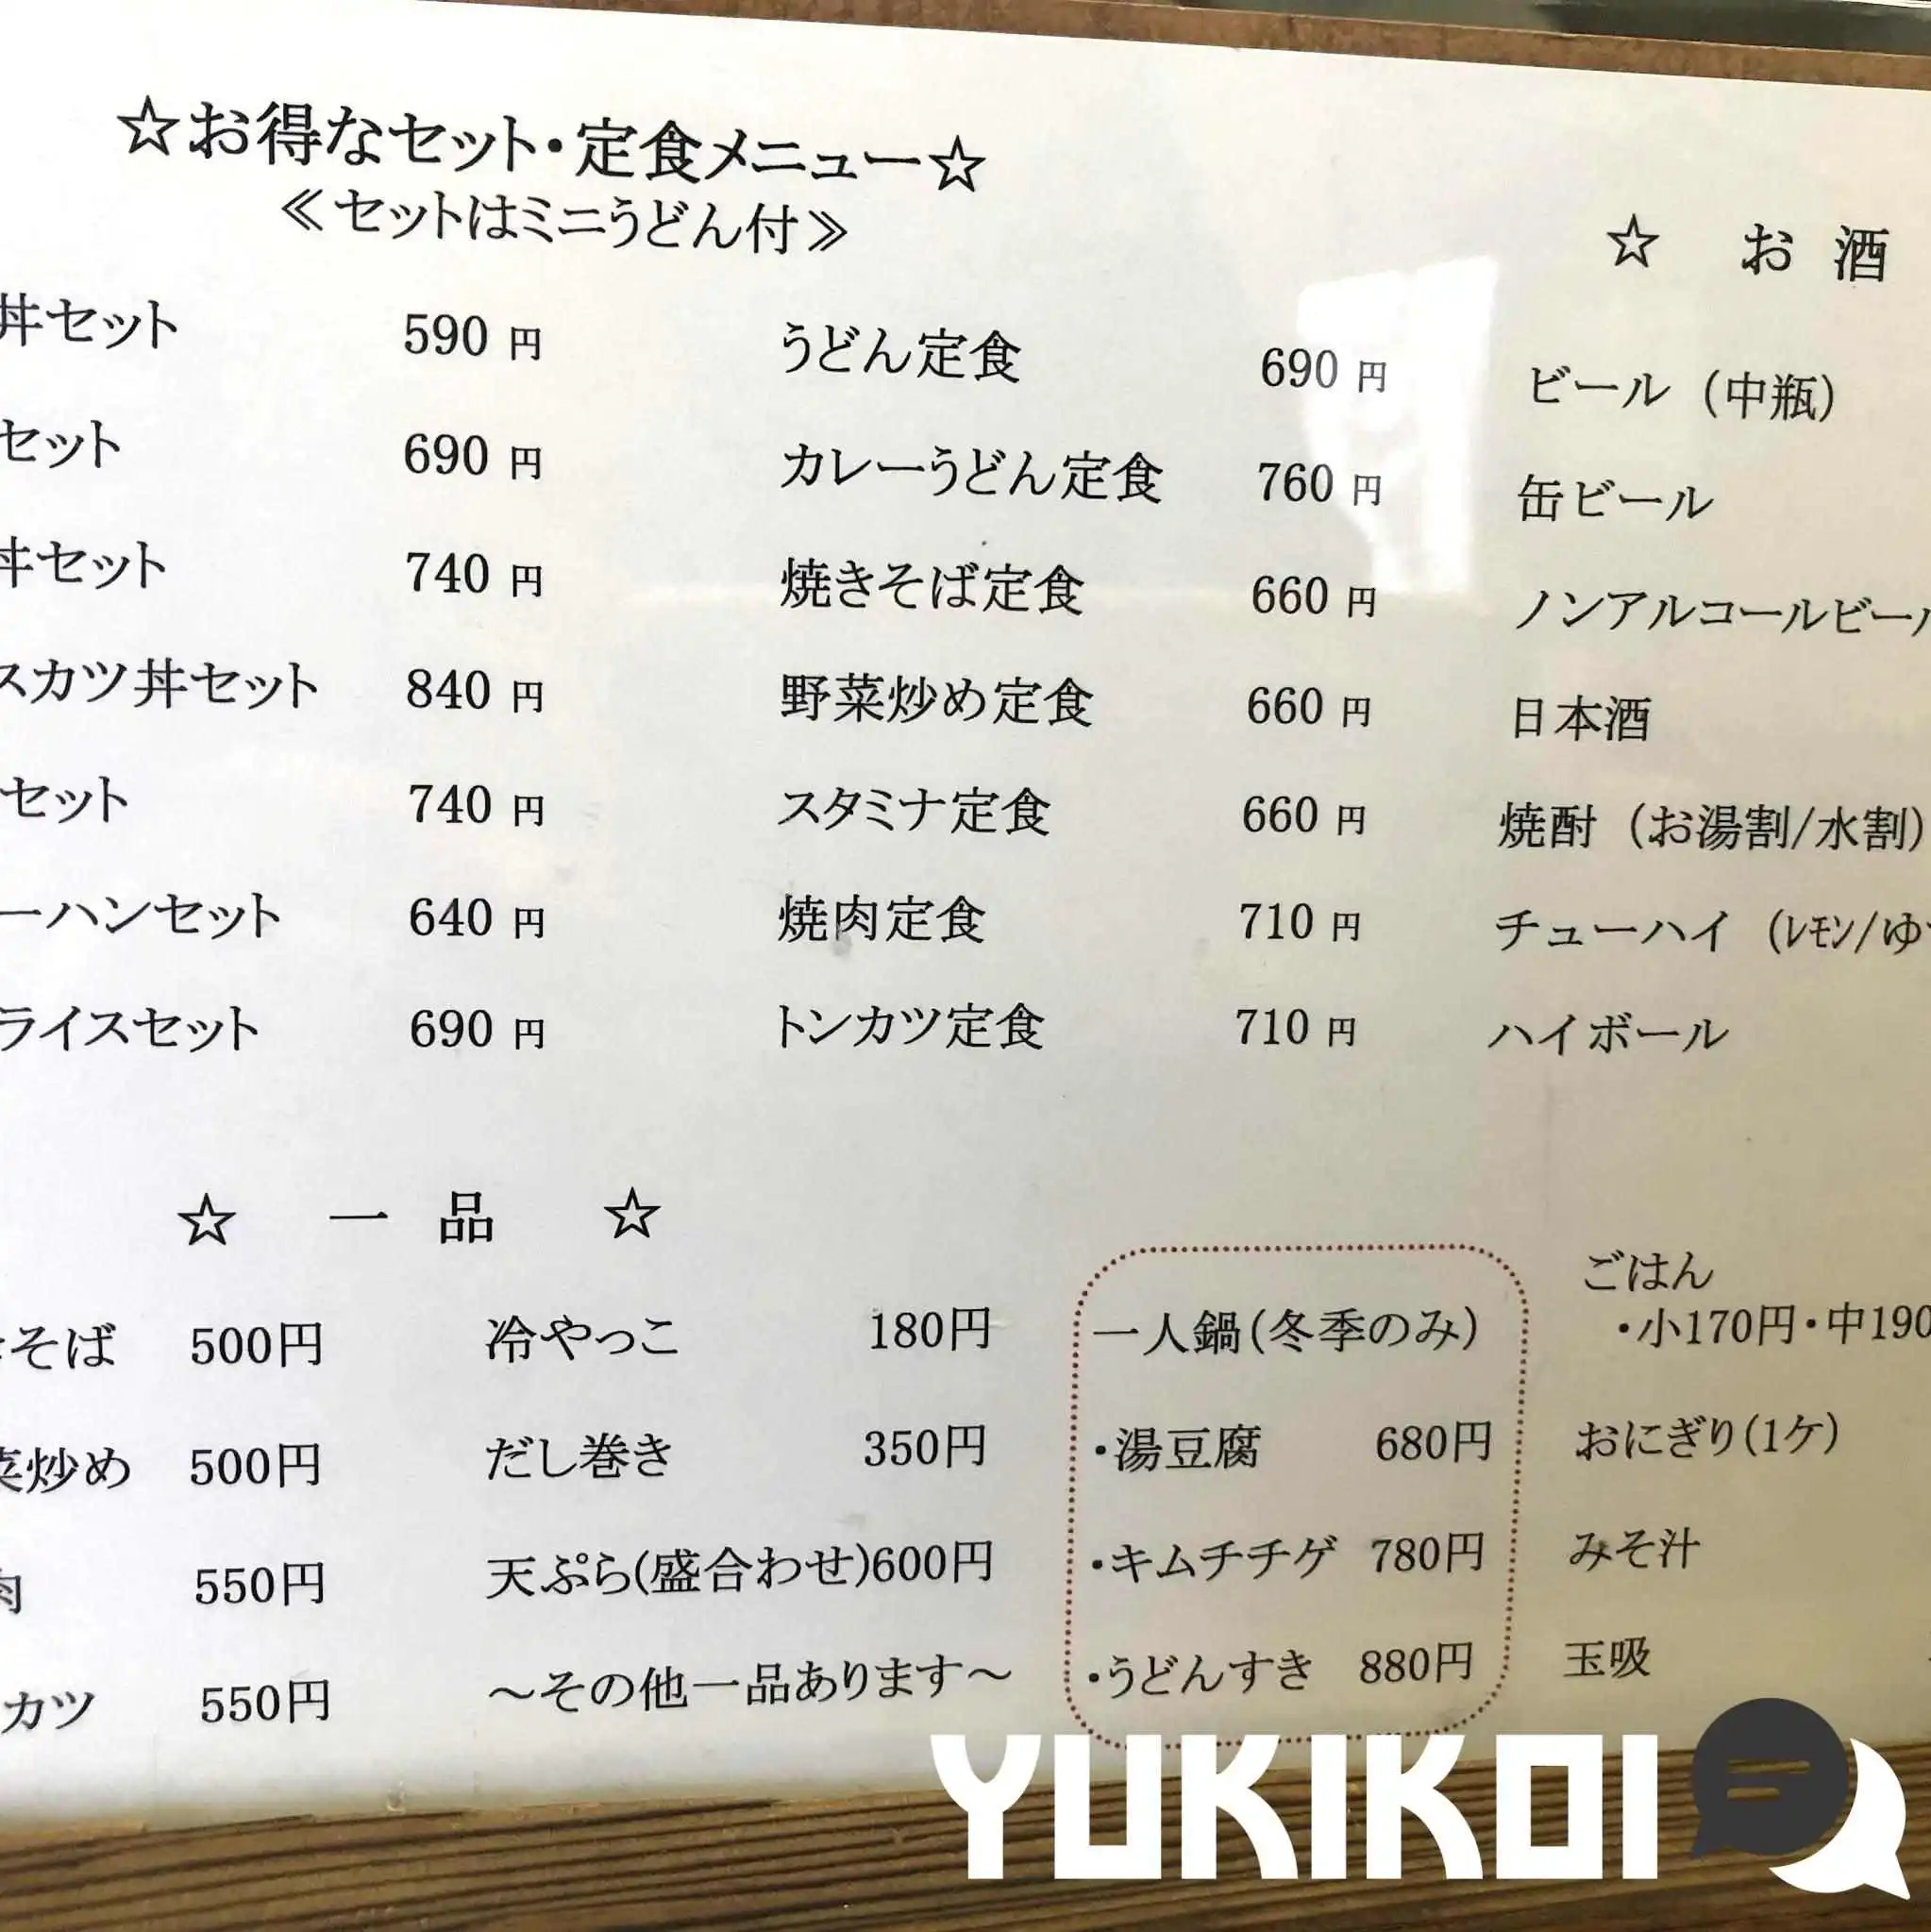 ☆お得なセット・定食メニュー☆
≪セットはミニうどん付≫
丼セット 590 円
セット 690 円
丼セット 740 円
スカツ丼セット 840 円
セット 740 円
ーハンセット 640 円
ライスセット 690 円
うどん定食 690 円
カレーうどん定食 760 円
焼きそば定食 660 円
野菜炒め定食 660 円
スタミナ定食 660 円
焼肉定食 710 円
トンカツ定食 710 円
☆ お 酒
ビール（中瓶）
缶ビール
ノンアルコールビール
日本酒
焼酎（お湯割/水割）
チューハイ（ﾚﾓﾝ/ゆ
ハイボール
☆ 一 品 ☆
そば 500円
菜炒め 500円
肉 550円
カツ 550円
冷やっこ 180円
だし巻き 350円
天ぷら(盛合わせ)600円
～その他一品あります～
一人鍋(冬季のみ)
・湯豆腐 680円
・キムチチゲ 780円
・うどんすき 880円
ごはん
・小170円・中190
おにぎり(1ケ)
みそ汁
玉吸
YUKIKOI